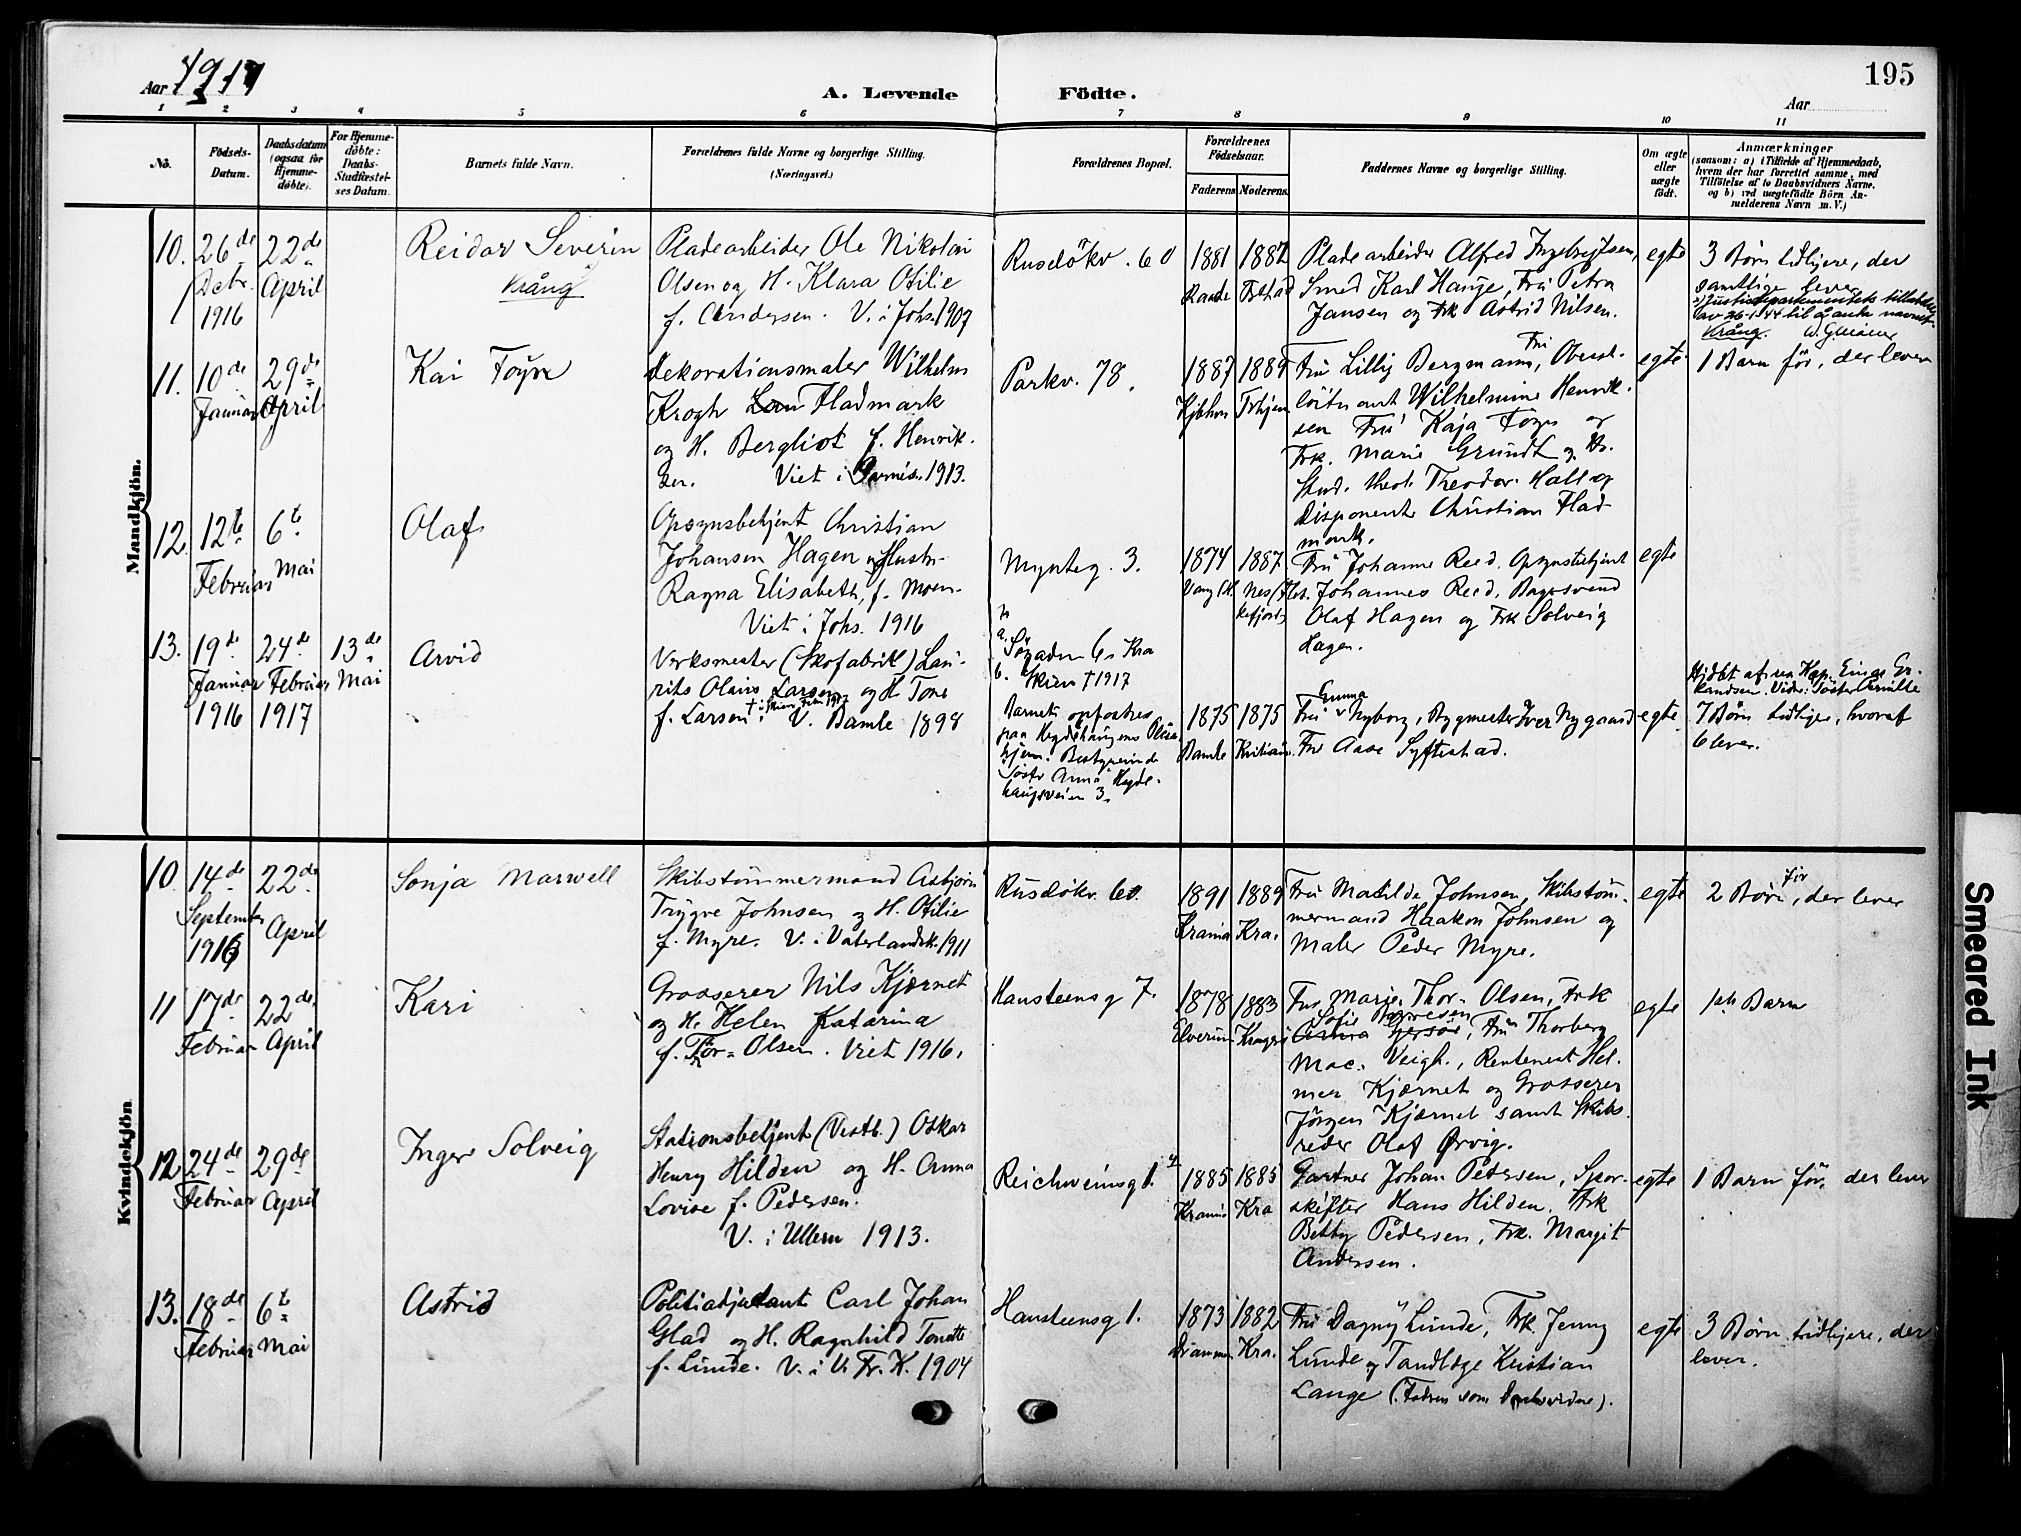 Aar 1917
A. Levende Fødte.
195
Aar
1 2 3 4 5 6 7 8 9 10 11
No.
Födsels-Datum.
Daabsdatum (ogsaa for Hjemme-døbte).
For Hjemme-døbte: Daabs-Stadfæstel-ses Datum.
Barnets fulde Navn.
Forældrenes fulde Navne og borgerlige Stilling. (Næringsvei.)
Forældrenes Bopæl.
Forældrenes Födselsaar.
Faderens Moderens
Faddernes Navne og borgerlige Stilling.
Om ægte eller uægte født.
Anmærkninger
(saasom: a) i Tilfælde af Hjemmedaab,
hvem der har forrettet samme, med
Tilföielse af to Daabsvidners Navne,
og b) ved uægtefödte Börn An-
melderens Navn m. V.)
Mandkjön.
10. 26de Decbr. 1916
22de April
Reidar Severin
Krång
Pladearbeider Ole Nikolai
Olsen og H. Klara Otilie
f. Andersen. V. i Johs. 1907
Rusdökv. 60
1881
1882
Plade arbeider Alfred Ingebrigtsen,
Smed Karl Hauge, Fru Petra
Jansen og Frk Astrid Nilsen.
egte
3 Börn tidligere, der
samtlige lever
Justisdepartementets tillatelse
av 26-1-44 til å anta navnet
Krång.
11. 10de Januar
29de April
Kai Foyn
Dekorationsmaler Wilhelm
Krogh Fladmark
og H. Bergliot f. Henrik-
sen. Viet i 1913.
Parkv. 78.
1887 Kjbhvn
1889
Fru Lilly Bergmann, Fru Oberst-
löitnant Wilhelmine Henrik-
sen Fru Kaja Foyn og
Frk. Marie Grundt og Hr.
Stud. theol. Theodor Hall og
Disponent Christian Flad-
mark.
egte
1 Barn før, der lever
12. 12te Februar
6te Mai
Olaf
Opsynsbetjent Christian
Johansen Hagen og Hustr.
Ragna Elisabeth, f. Moen.
Viet i Johs. 1916
Mynteg. 3.
1874
1887
Fru Johanne Reed, Opsynsbetjent
Johannes Reed, Bagersvend
Olaf Hagen og Frk Solveig
Hagen.
egte
13. 19de Januar 1916
24de Februar 1917
13de Mai
Arvid
Verksmester (Skofabrik) Lau-
rits Olaus Larsen og H. Tone
f. Larsen V. Bamle 1898
a. Søgaden 6, Kra
b. Skien † 1917
Barnet opfostres
paa Hegdehaugens Pleie-
hjem. Bestyrerinde
Søster Anna Hegde-
haugsveien 3.
1875 Bamle
1875
Fru Gunna Nyborg, Bygmester Iver Nygaard
Fru Aase Syftestad.
egte
Hjdbt af res Kap. Einar Er-
landsen. Vidn: Søster
7 Börn tidligere, hvoraf
6 lever.
Kvindekjön
10. 14de September 1916
22de April
Sonja Marwell
Skibstömmermand Asbjørn
Trygve Johnsen og H. Otilie
f. Myre. V. i Vaterlandsk. 1911
Rusdökv. 60.
1891 Krania
1889 Kra.
Fru Matilde Johnsen, Skibstöm-
mermand Haakon Johnsen og
Maler Peder Myre.
egte
2 Börn før, der lever
11 17de Februar
22de April
Kari
Grosserer Nils Kjærnet
og H. Helen Katarina
f. Tor-Olsen. Viet 1916.
Hansteensg 7.
1878 Elverum
1883 Kragerø
Fru Marie Thor-Olsen, Frk
Sofie Fru Thorberg
Mac. Veigh, Rentenest Hel-
mer Kjærnet og Grosserer
Jörgen Kjærnet samt Skibs-
reder Olaf Ørvig.
egte
1ste Barn
12 24de Februar
29de April
Inger Solveig
Stationsbetjent (Vestb.) Oskar
Henry Hilden og H. Anna
Lovise f. Pedersen.
V. i Ullern 1913.
Reichweinsg 1.
1885 Krania
1885 Kra
Gartner Johan Petersen, Spor-
skifter Hans Hilden, Frk
Betty Pedersen, Frk. Margit
Andersen.
egte
1 Barn før, der lever
13. 18de Februar
6te Mai
Astrid
Politiadjutant Carl Johan
Glad og H. Ragnhild Tonette
f. Lunde. V. i V. Fr. K. 1904
Hansteensg 1.
1873 Drammen
1882 Kra.
Fru Dagny Lunde, Frk. Jenny
Lunde og Tandlæge Kristian
Lange (Fadren som Daabsvidne).
egte
3 Börn tidligere, der
lever.
Smeared Ink